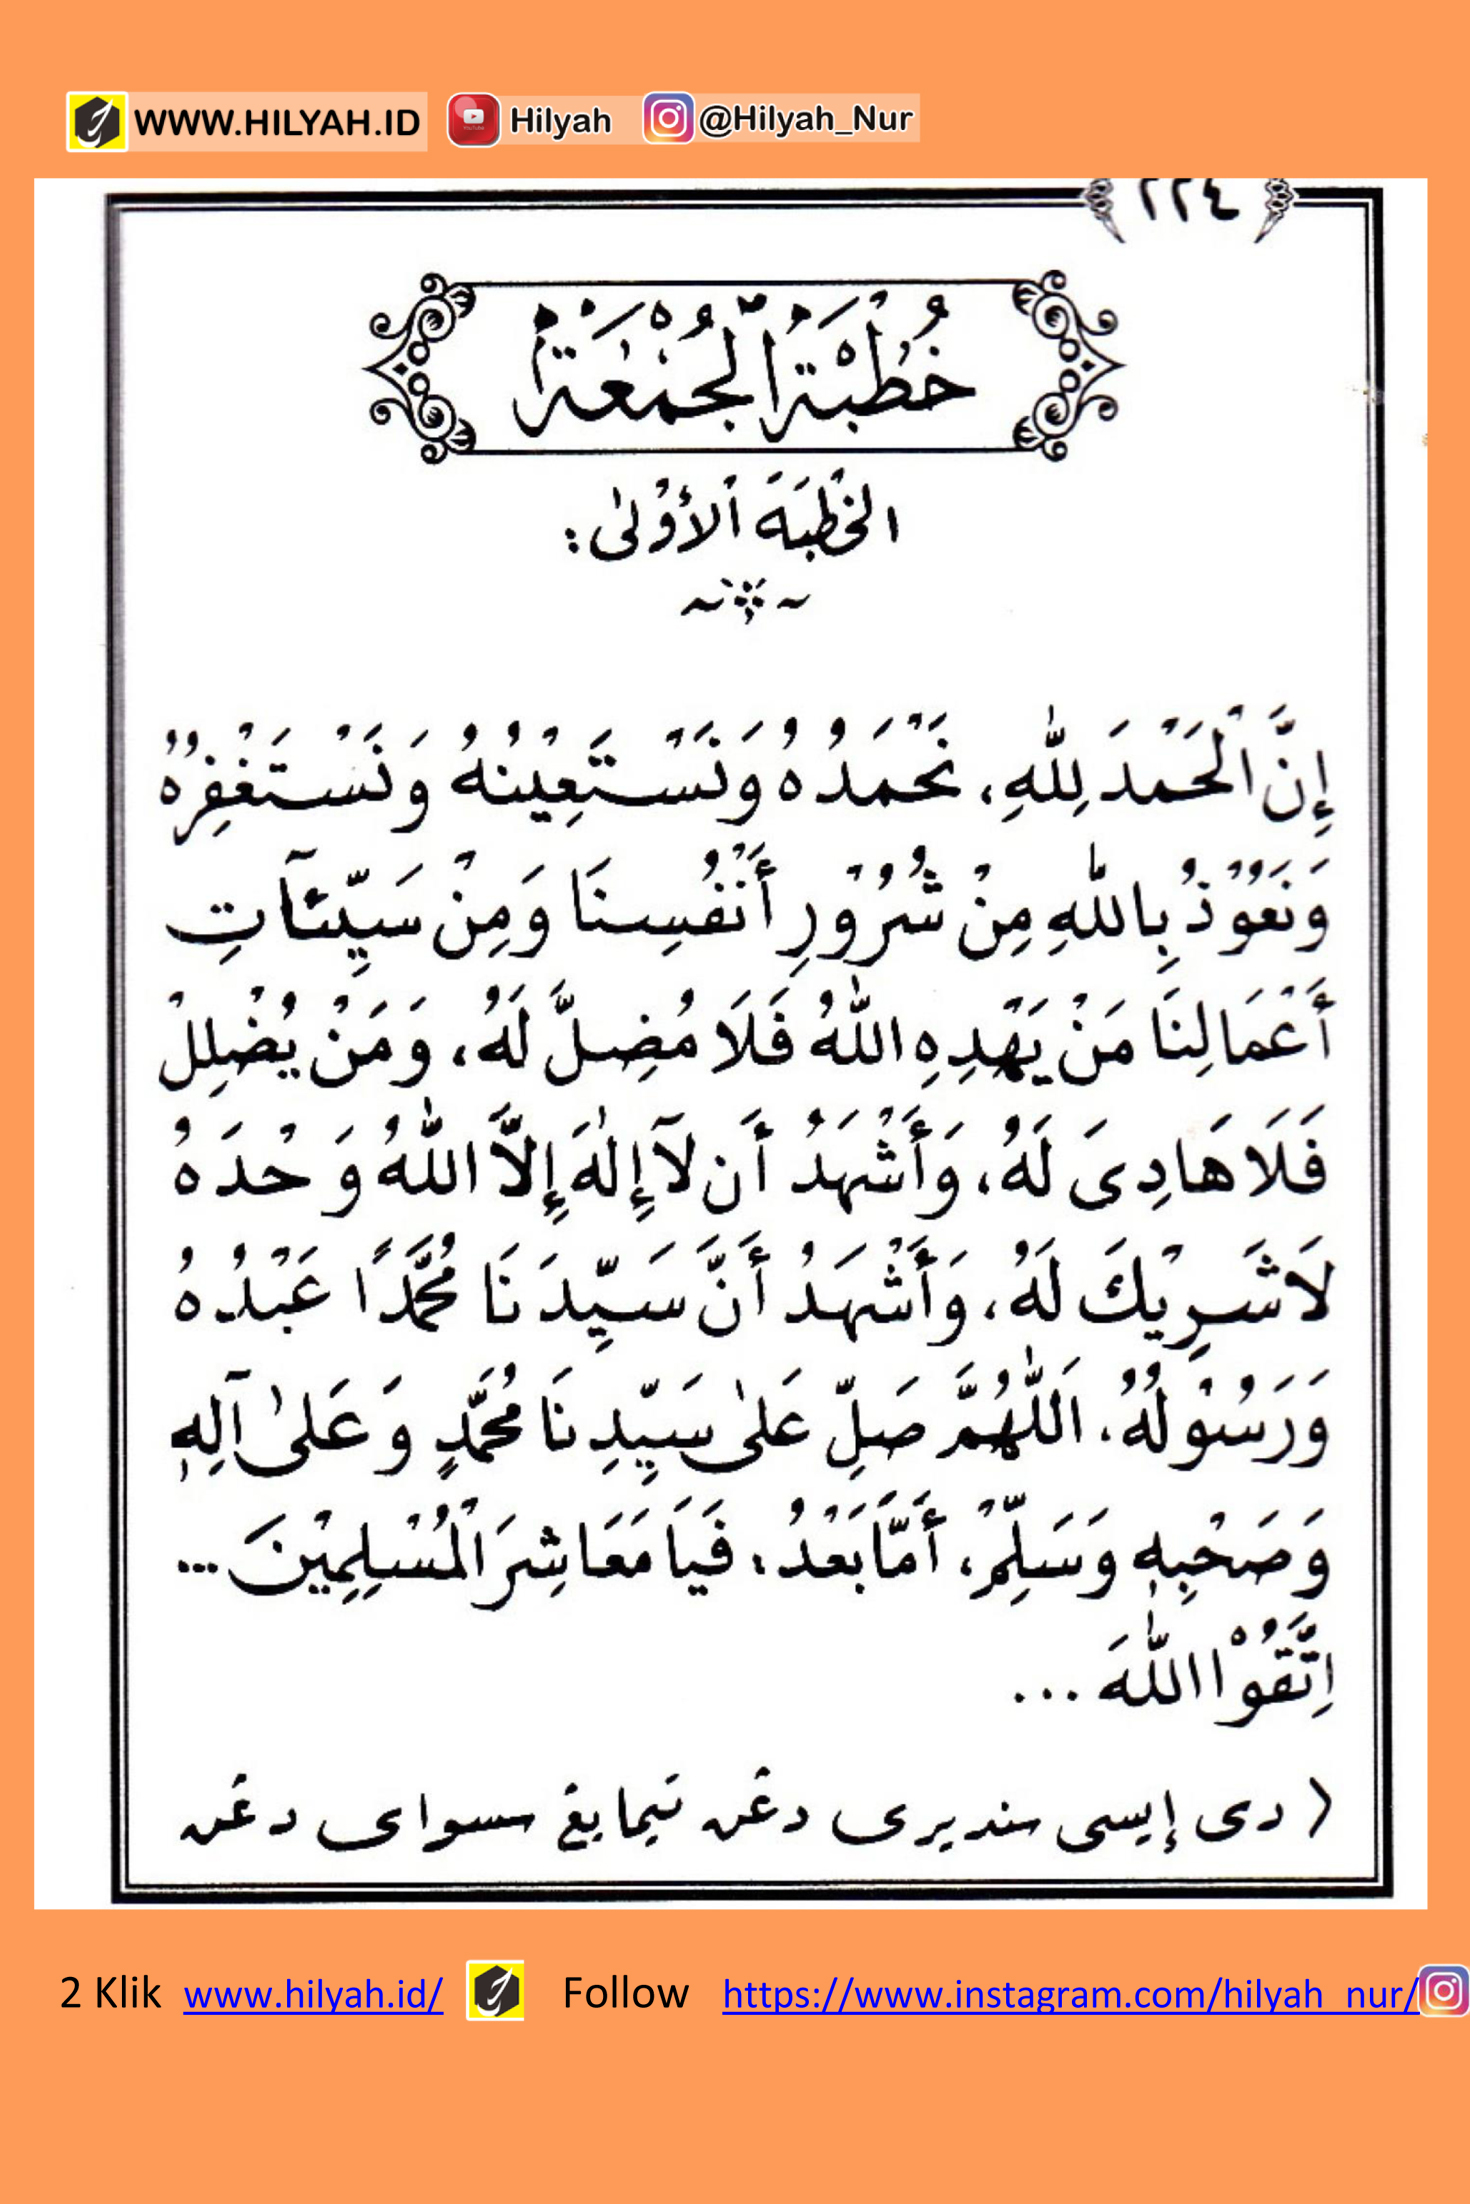 WWW.HILYAH.ID Hilyah @Hilyah_Nur
٢٢٤
خُطْبَةُ الْجُمْعَةِ
الخُطْبَةُ الْأُوْلىٰ:
إِنَّ الْحَمْدَ لِلّٰهِ، نَحْمَدُهُ وَنَسْتَعِيْنُهُ وَنَسْتَغْفِرُهُ
وَنَعُوْذُ بِاللّٰهِ مِنْ شُرُوْرِ أَنْفُسِنَا وَمِنْ سَيِّئَآتِ
أَعْمَالِنَا مَنْ يَهْدِهِ اللّٰهُ فَلَا مُضِلَّ لَهُ، وَمَنْ يُضْلِلْ
فَلَا هَادِىَ لَهُ، وَأَشْهَدُ أَن لَآ إِلٰهَ إِلَّا اللّٰهُ وَحْدَهُ
لَا شَرِيْكَ لَهُ، وَأَشْهَدُ أَنَّ سَيِّدَنَا مُحَمَّدًا عَبْدُهُ
وَرَسُوْلُهُ، اَللّٰهُمَّ صَلِّ عَلىٰ سَيِّدِنَا مُحَمَّدٍ وَعَلىٰ آلِهٖ
وَصَحْبِهٖ وَسَلِّمْ، أَمَّا بَعْدُ، فَيَا مَعَاشِرَ الْمُسْلِمِيْنَ ...
اِتَّقُوْا اللّٰهَ ...
( دى إيسى سنديرى دڠن تيما يڠ سسواى دڠن
2 Klik www.hilyah.id/ Follow https://www.instagram.com/hilyah_nur/